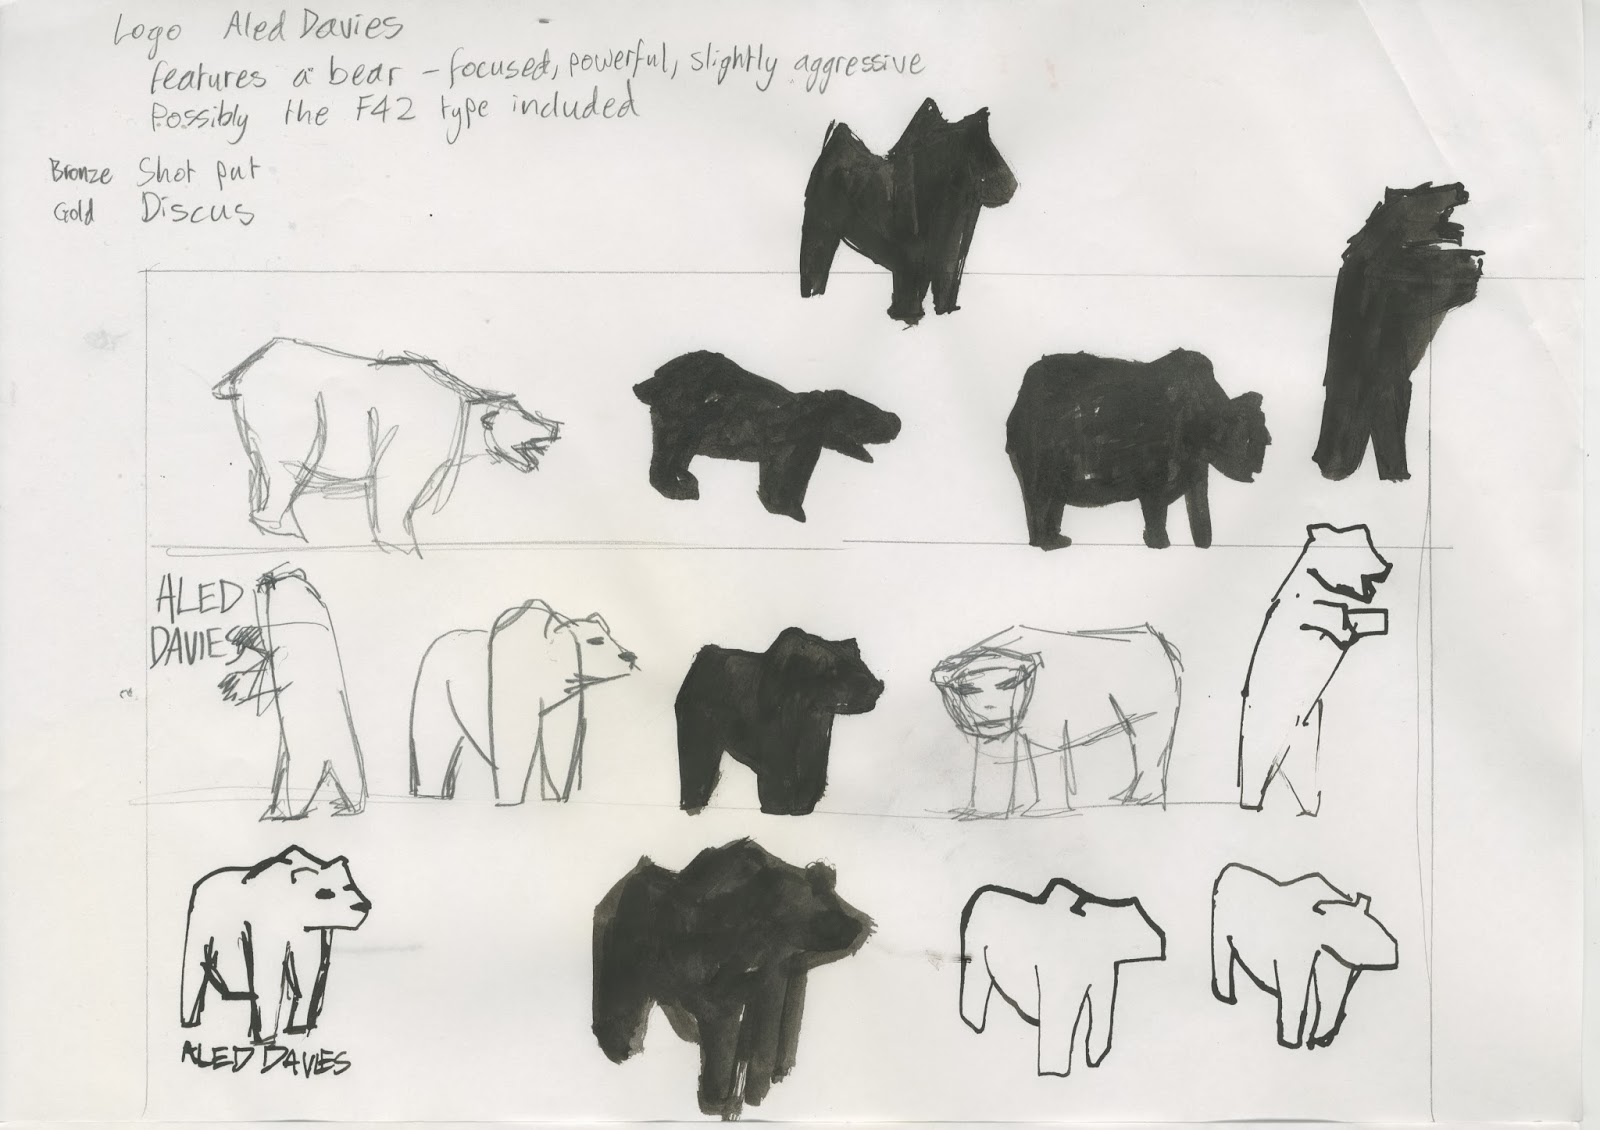 Logo Aled Davies
features a bear - focused, powerful, slightly aggressive
Possibly the F42 type included
Bronze Shot put
Gold Discus
ALED
DAVIES
ALED DAVIES